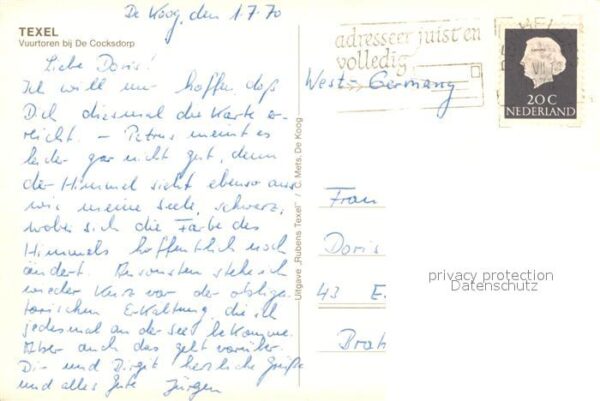 De Koog, den 1.7.70
TEXEL
Vuurtoren bij De Cocksdorp
Liebe Doris!
Ich will nur hoffen, daß
Dich diesmal die Karte er-
reicht. – Petrus meint es
leider gar nicht gut, denn
der Himmel sieht ebenso aus
wie meine Seele, schwarz,
wobei sich die Farbe des
Himmels hoffentlich noch
ändert. Ansonsten stehe ich
wieder kurz vor der obliga-
torischen Erkältung, die ich
jedesmal an der See bekomme.
Aber auch das geht vorüber.
Dir und Birgit herzliche Grüße
und alles Gute Jürgen
Uitgave „Rubens Texel" / C. Mets, De Koog
adresseer juist en
volledig
West-Germany
20 C
NEDERLAND
Frau
Doris
43 E.
Drah
privacy protection
Datenschutz